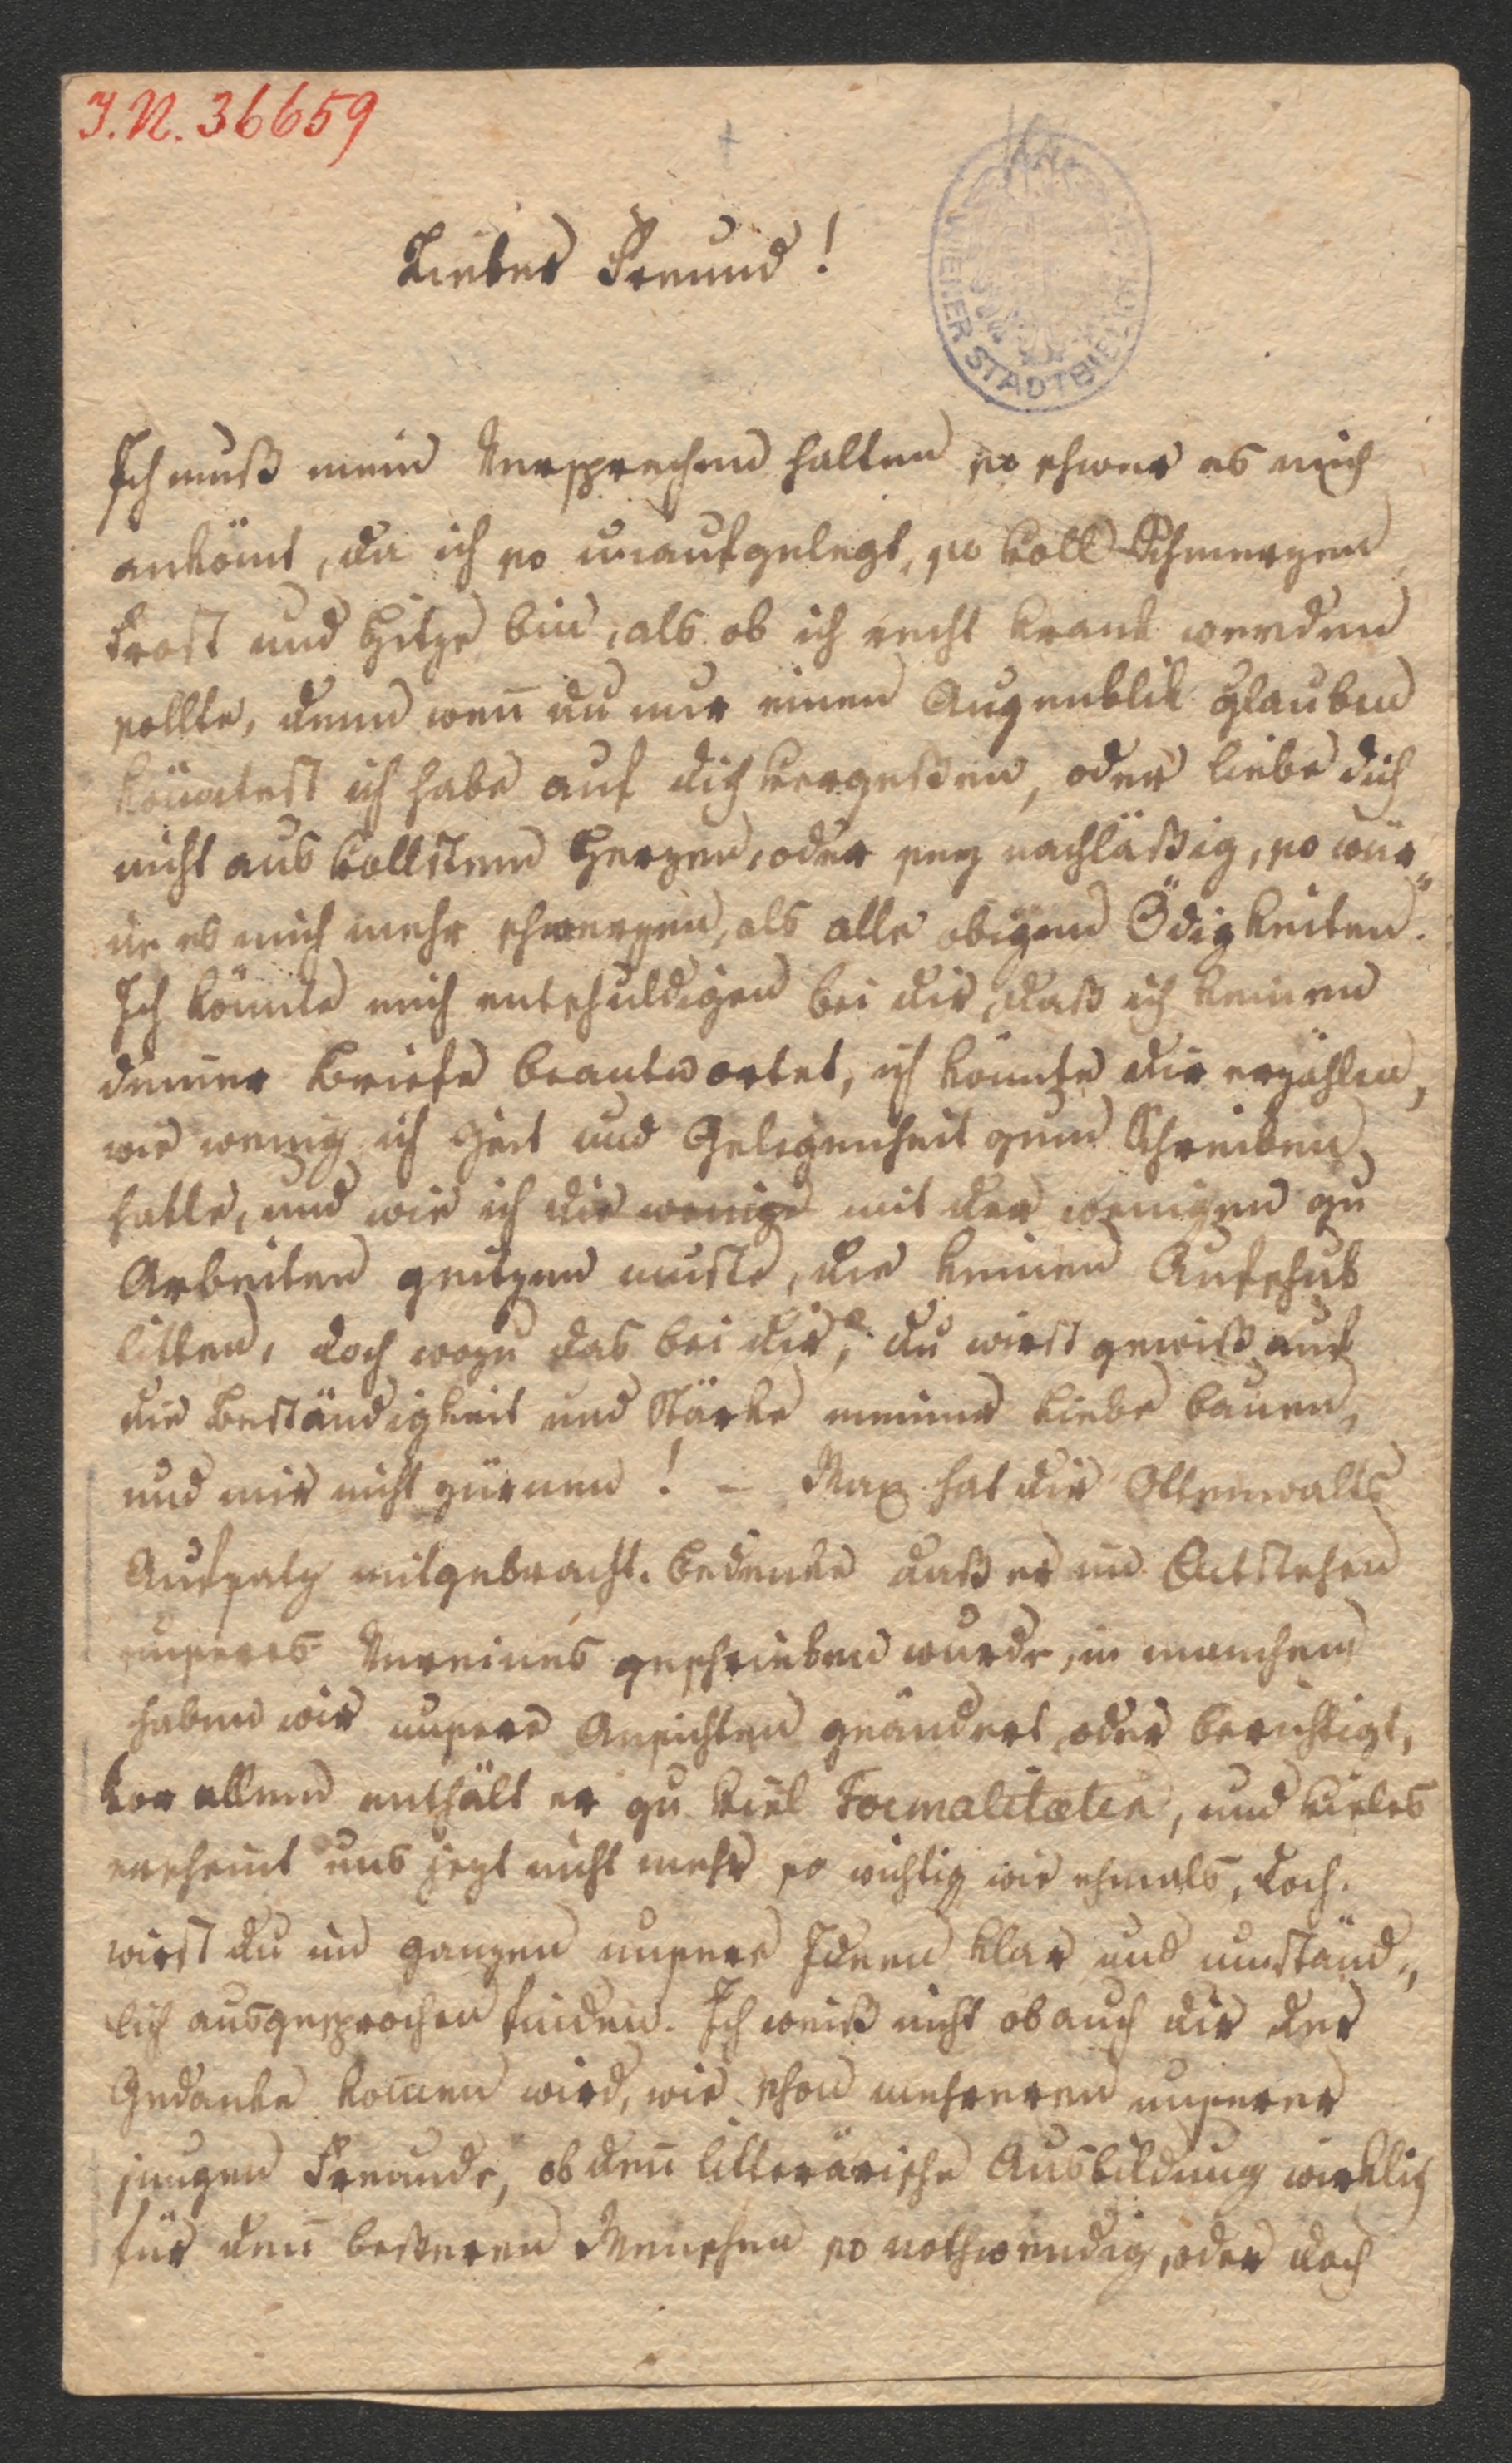 I.N. 36659
WIENER STADTBIBLIO
Lieber Freund!
Ich muß mein Versprechen halten so schwer es mich
ankömt, da ich so unaufgelegt, so voll Schmerzen
Frost und Hitze bin, als ob ich recht krank werden
sollte, denn weñ du nur einen Augenblik glauben
köñtest ich habe auf dich vergeßen, oder liebe dich
nicht aus vollstem Herzen, oder sey nachläßig, so wür„
de es mich mehr schmerzen, als alle obigen Ödigkeiten.
Ich könnte mich entschuldigen bei dir, daß ich keinen
deiner Briefe beantwortet, ich könnte dir erzählen,
wie wenig ich Zeit und Gelegenheit zum Schreiben
hatte, und wie ich die wenige mit der wenigen zu
Arbeiten geitzen mußte, die keinen Aufschub
litten, doch wozu das bei dir? du wirst gewiß auf
die Beständigkeit und Stärke meiner Liebe bauen,
und mir nicht zürnen! – Max hat dir Ottenwalts
Aufsatz mitgebracht. Bedenke daß er im Entstehen
unseres Vereines geschrieben wurde, in manchem
haben wir unsere Ansichten geändert, oder berichtigt,
vor allem enthält er zu viel Formalitæten, und vieles
erscheint uns jezt nicht mehr so wichtig wie ehmals, doch
wirst du im ganzen unsere Ideen klar und umständ„
lich ausgesprochen finden. Ich weiß nicht ob auch dir der
Gedanke kom̃en wird, wie schon mehreren unserer
jungen Freunde, ob deñ litterärische Ausbildung wirklich
für den beßeren Menschen so nothwendig, oder doch